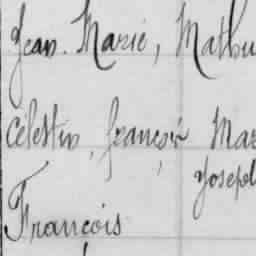 Jean. Marie, Mathu
Celestin, françois Mar
Joseph
François